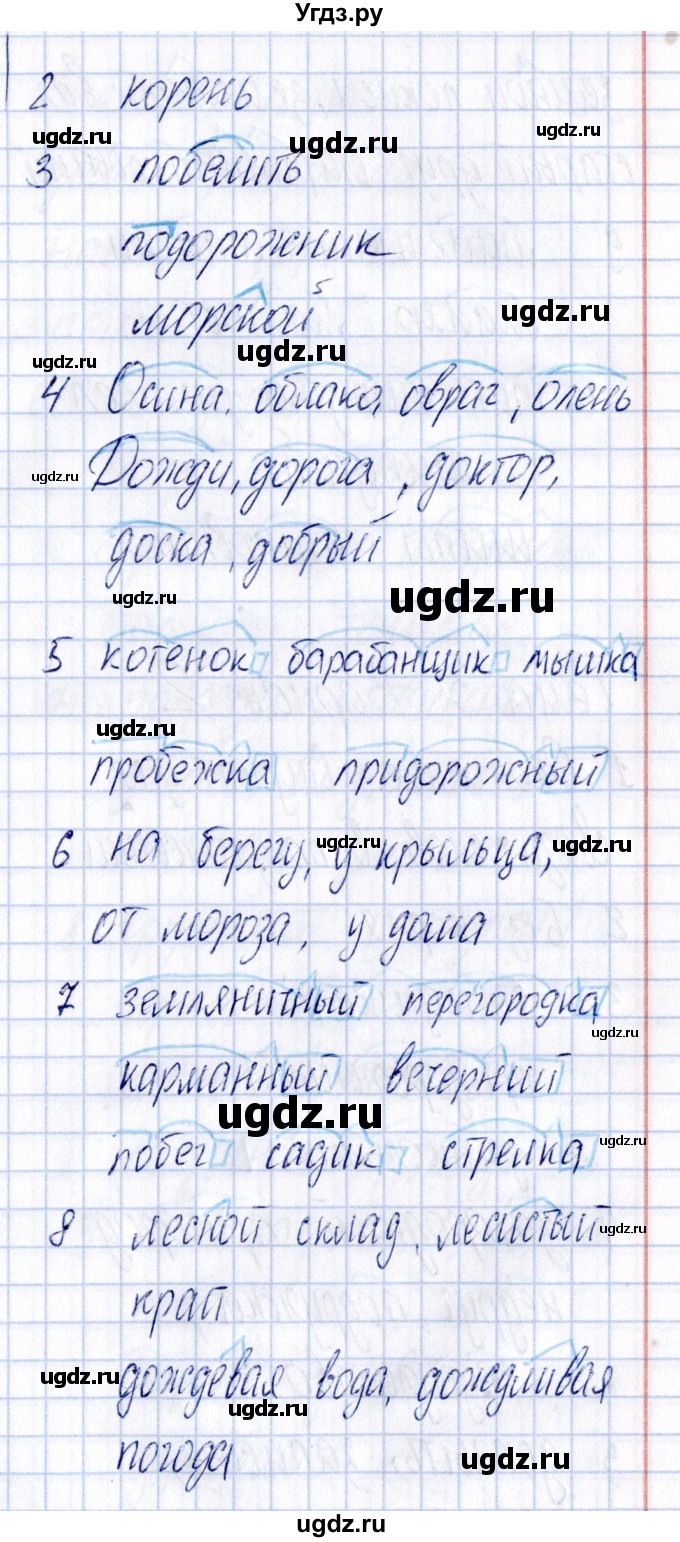 Угдз.ру
2 корень
ugdz.ru ugdz.ru ugdz.ru
3 побелить
подорожник
морской 5
ugdz.ru ugdz.ru
ugdz.ru
4 Осина, облако, овраг, олень
ugdz.ru Дожди, дорога, доктор,
доска, добрый
ugdz.ru ugdz.ru
5 котенок барабанщик мышка
ugdz.ru
пробежка придорожный
6 на берегу, у крыльца,
ugdz.ru ugdz.ru
от мороза, у дома
7 земляничный перегородка
ugdz.ru
карманный вечерний
ugdz.ru
побег садик стрелка
ugdz.ru
8 лесной склад, лесистый
ugdz.ru
край
ugdz.ru дождевая вода, дождливая
ugdz.ru
погода
ugdz.ru
ugdz.ru